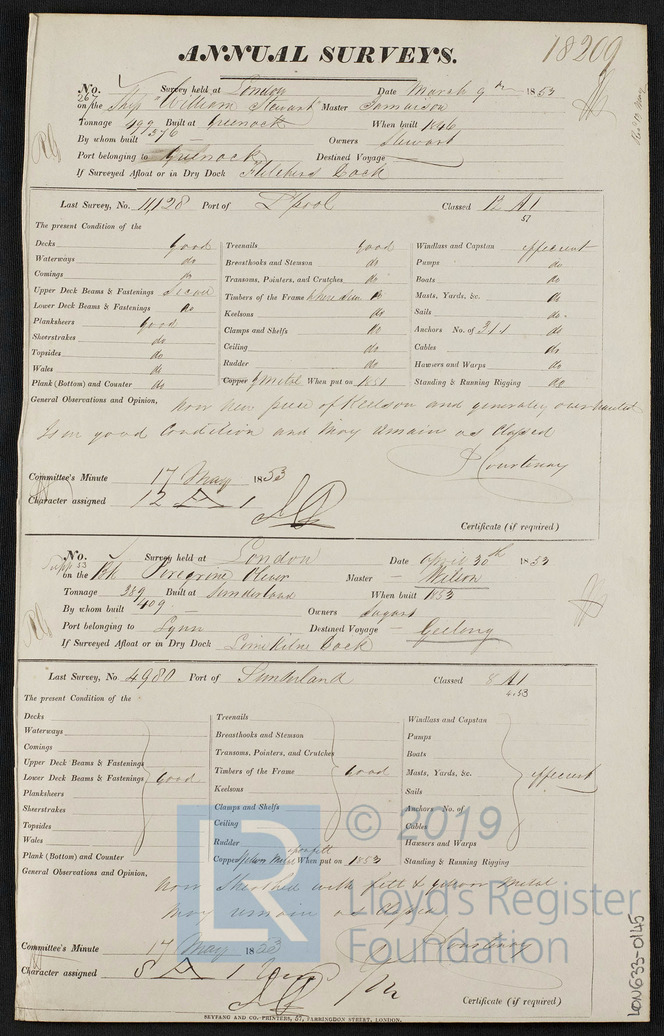 ANNUAL SURVEYS.
18209
No. 267 Survey held at London Date March 9th 1853
on the Ship "William Stewart" Master Jamieson
Tonnage 499 576 Built at Greenock When built 1846
By whom built Owners Stewart
Port belonging to Greenock Destined Voyage
If Surveyed Afloat or in Dry Dock Fletchers Dock
Last Survey, No. 11,128 Port of L'pool Classed 12 A1
51
The present Condition of the
Decks good Treenails good Windlass and Capstan efficient
Waterways do Breasthooks and Stemson do Pumps do
Comings do Transoms, Pointers, and Crutches do Boats do
Upper Deck Beams & Fastenings Timbers of the Frame where seen do Masts, Yards, &c. do
Lower Deck Beams & Fastenings do Keelsons do Sails do
Planksheers good Clamps and Shelfs do Anchors No. of 3 1 1 do
Sheerstrakes do Ceiling do Cables do
Topsides do Rudder do Hawsers and Warps do
Wales do Copper y Metal When put on 1851 Standing & Running Rigging do
Plank (Bottom) and Counter do
General Observations and Opinion, Now New piece of Keelson and generally overhauled
Is in good Condition and May remain as Classed
J Courtenay
Committee's Minute 17 May 1853
Character assigned 12 A 1
Certificate (if required)
No. Supp 53 Survey held at London Date April 30th 1853
on the Bk Peregrine Oliver Master Wilson
Tonnage 389 409 Built at Sunderland When built 1853
By whom built Owners
Port belonging to Lynn Destined Voyage Geelong
If Surveyed Afloat or in Dry Dock Lime Kilne Dock
Last Survey, No 4980 Port of Sunderland Classed 8 A1
4.53
The present Condition of the
Decks Treenails Windlass and Capstan
Waterways Breasthooks and Stemson Pumps
Comings Transoms, Pointers, and Crutches Boats
Upper Deck Beams & Fastenings Timbers of the Frame good Masts, Yards, &c. efficient
Lower Deck Beams & Fastenings good Keelsons Sails
Planksheers Clamps and Shelfs Anchors No. of
Sheerstrakes Ceiling Cables
Topsides Rudder Hawsers and Warps
Wales Copper yellow Metal When put on 1853 Standing & Running Rigging
Plank (Bottom) and Counter
General Observations and Opinion, Now Sheathed with felt & yellow metal
May remain as Classed
J Courtenay
Committee's Minute 17 May 1853
Character assigned 8 A 1
Certificate (if required)
SEYFANG AND CO.-PRINTERS, 57, FARRINGDON STREET, LONDON.
LR
© 2019
Lloyd's Register
Foundation
LON633-0145